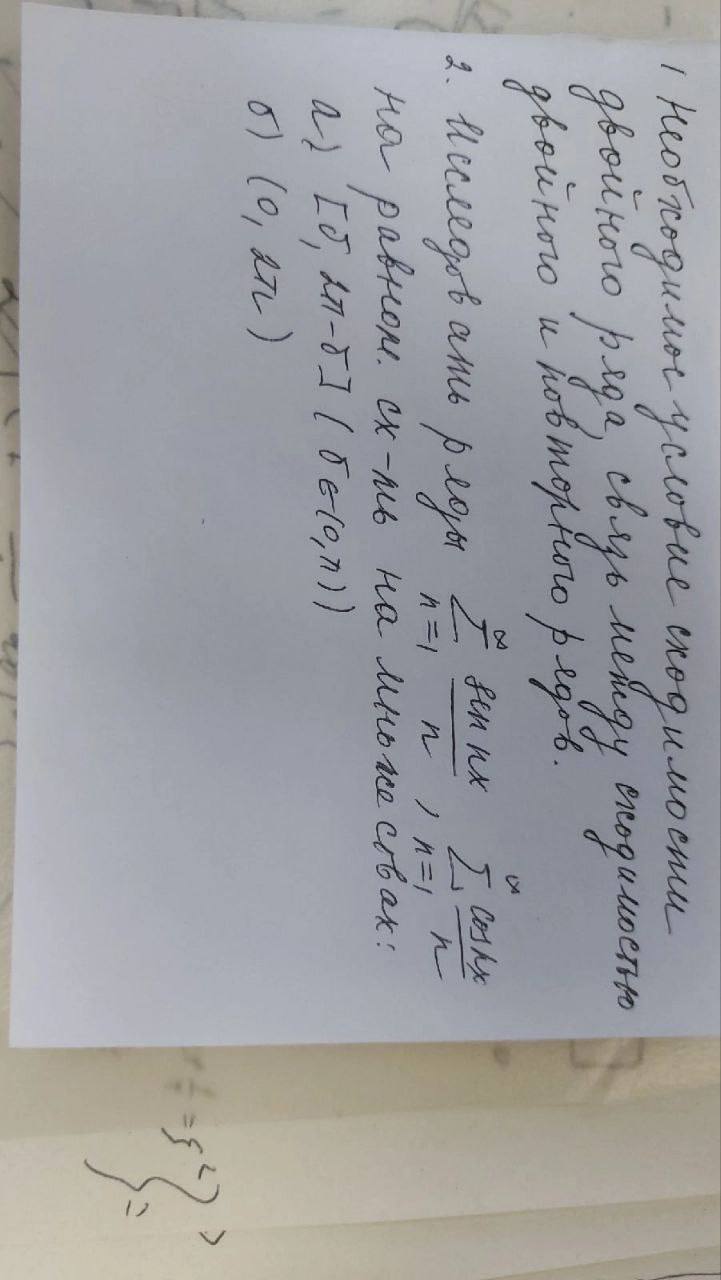 1 Необходимое условие сходимости
двойного ряда, связь между сходимостью
двойного и повторного рядов.
2. Исследовать ряды \sum_{n=1}^{\infty} \frac{\sin nx}{n}, \sum_{n=1}^{\infty} \frac{\cos nx}{n}
на равном. сх-ть на множествах:
а) [δ, 2π-δ] (δ∈(0,π))
б) (0, 2π)